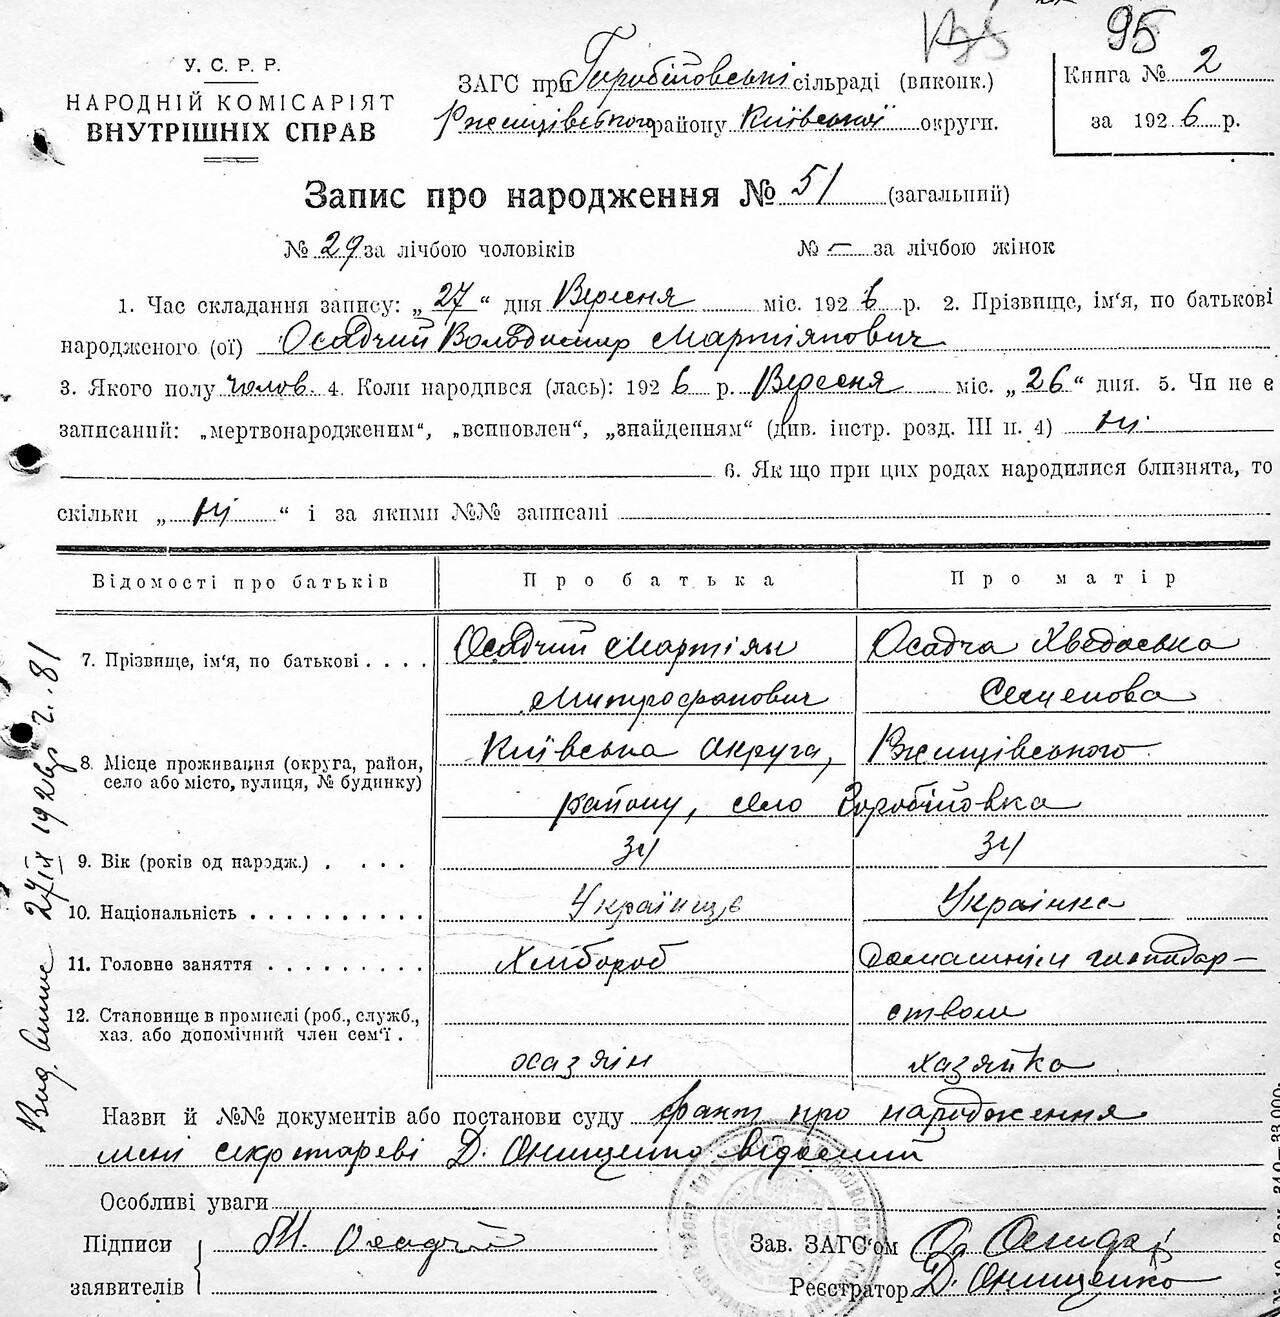 95
У. С. Р. Р.
НАРОДНІЙ КОМІСАРІЯТ
ВНУТРІШНІХ СПРАВ
ЗАГС при Горобіївській сільраді (виконк.)
Ржищівського району Київської округи.
Книга № 2
за 1926 р.
Запис про народження № 51 (загальний)
№ 29 за лічбою чоловіків № — за лічбою жінок
1. Час складання запису: „27“ дня Вересня міс. 1926 р. 2. Прізвище, ім‘я, по батькові
народженого (ої) Осадчий Володимир Мартіянович
3. Якого полу чолов. 4. Коли народився (лась): 1926 р. Вересня міс. „26“ дня. 5. Чи не є
записаний: „мертвонародженим“, „всиновлен“, „знайденням“ (див. інстр. розд. III п. 4) ні
6. Як що при цих родах народилися близнята, то
скільки „ні“ і за якими №№ записані
Відомості про батьків Про батька Про матір
7. Прізвище, ім‘я, по батькові . . . . Осадчий Мартіян Осадча Хведоська
Митрофанович Семенова
8. Місце проживання (округа, район, село або місто, вулиця, № будинку) Київська округа, Ржищівського
району, село Горобіївка
9. Вік (років од нардж.) . . . . . 34 34
10. Національність . . . . . . . . . . Українець Українка
11. Головне заняття . . . . . . . . . Хлібороб Домашнім господар–
12. Становище в промислі (роб., служб., ством
хаз. або допомічний член сем‘ї . хазяїн хазяйка
Назви й №№ документів або постанови суду факт про народження
мені секретареві Д. Онищенко відомий
Особливі уваги
Підписи М. Осадчий Зав. ЗАГС‘ом
заявителів Реєстратор Д. Онищенко